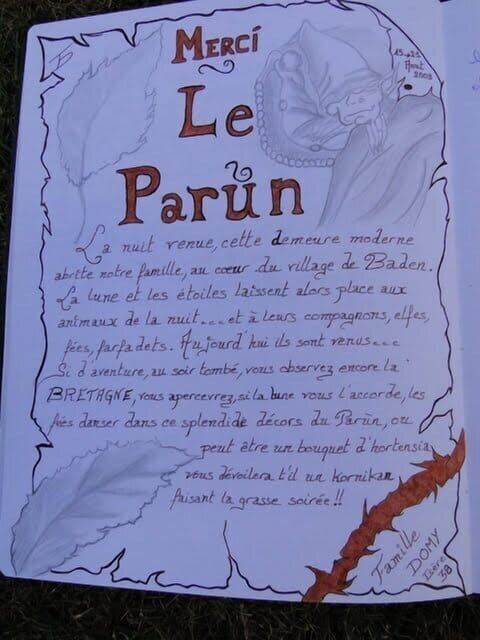 MERCI
15→21
Août
2008
Le
Parùn
La nuit venue, cette demeure moderne
abrite notre famille, au cœur du village de Baden.
La lune et les étoiles laissent alors place aux
animaux de la nuit... et à leurs compagnons, elfes,
fées, farfadets. Aujourd'hui ils sont venus...
Si d'aventure, au soir tombé, vous observez encore la
BRETAGNE, vous apercevrez, si la lune vous l'accorde, les
fées danser dans ce splendide décors du Parùn, ou
peut être un bouquet d'hortensia
vous dévoilera t'il un kornikan
faisant la grasse soirée!!
Famille
DOMY
Isère
38